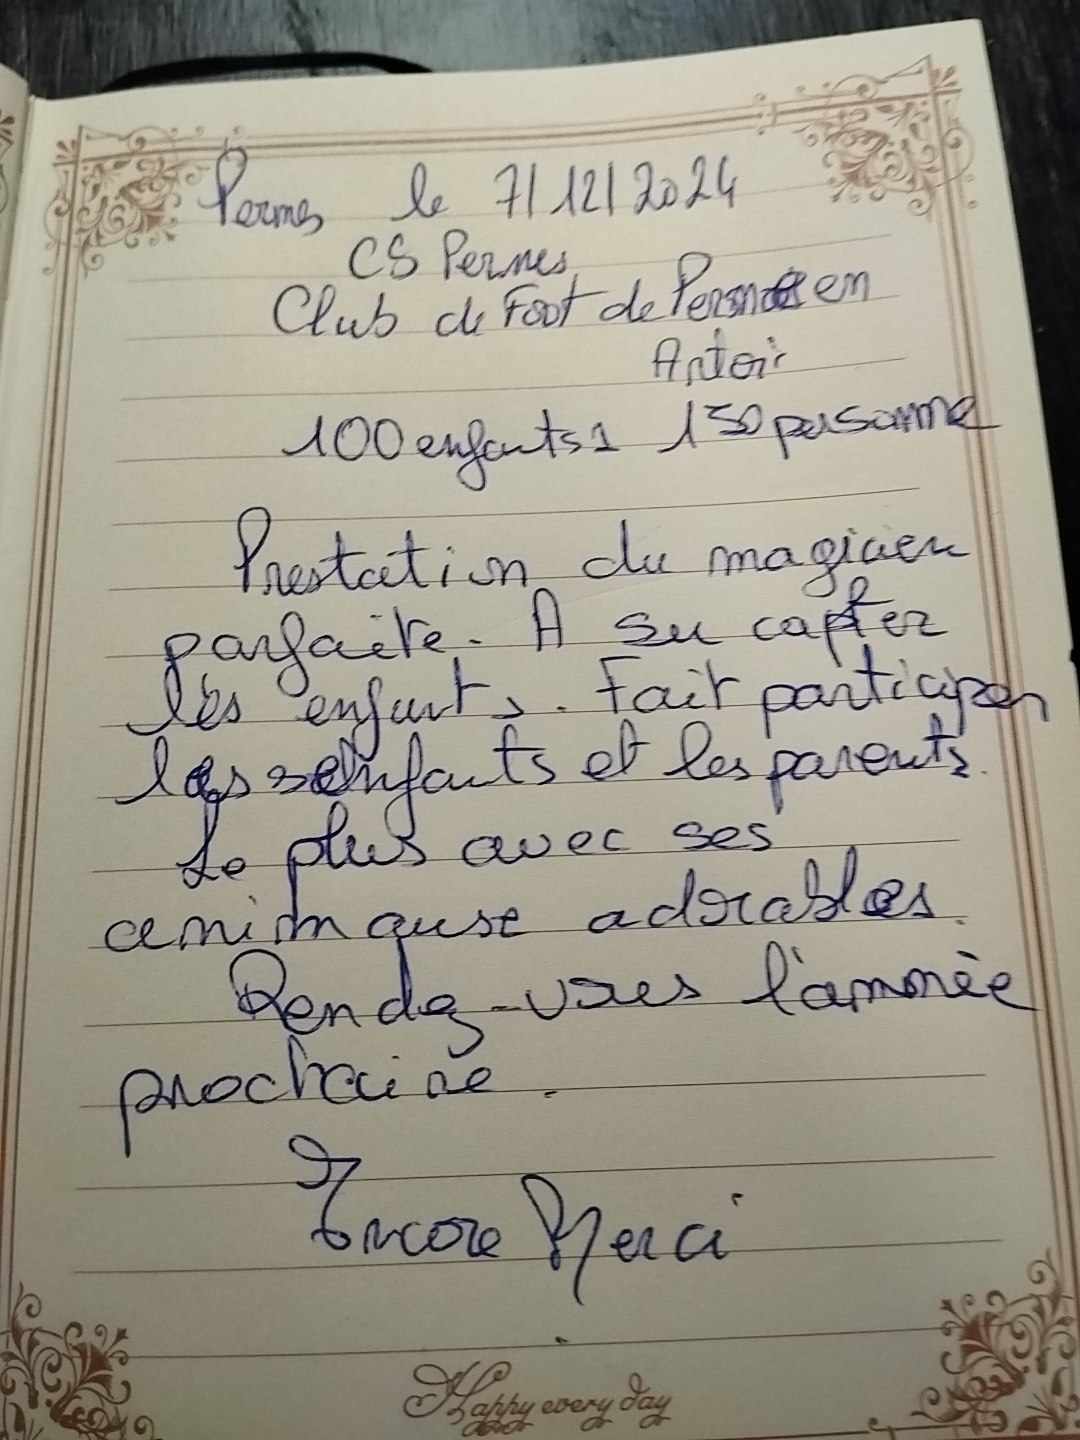 Pernes le 7/12/2024
CS Pernes
Club de Foot de Pernes en
Artois
100 enfants 150 personne
Prestation du magicien
parfaite. A su capter
les enfants. Fait participer
les enfants et les parents.
Le plus avec ses
animause adorables.
Rendez-vous l'année
prochaine.
Encore Merci
Happy every day